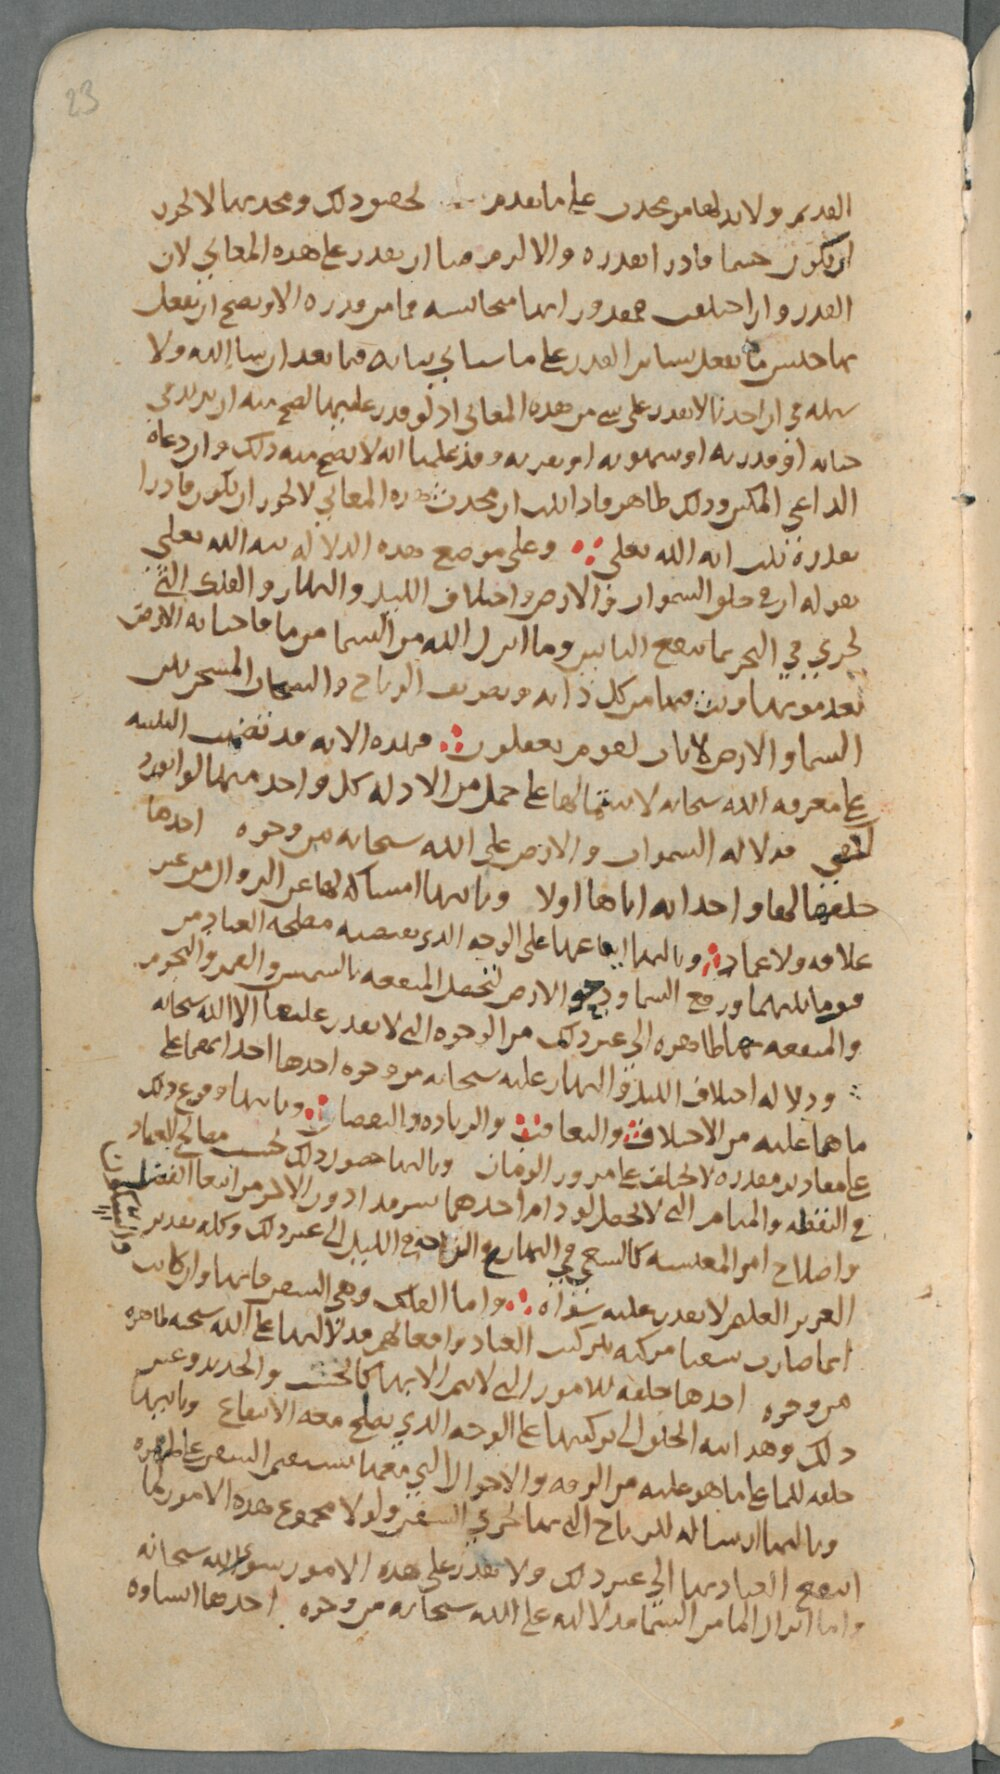 23
القديم ولا بد لها من محدث على ما تقدم لحصر ذلك ومحدثها لا يجوز
ان يكون جسما قادرا بقدرة والا لزم منا ان نقدر على هذه المعاني لان
القدر وان اختلفت فمقدوراتها متجانسة فما من قدرة الا ويصح ان نفعل
بها جنس ما يفعل بسائر القدر على ما سيأتي بيانه فيما بعد ان شا الله ولا
شبهة في ان احدنا لا يقدر على شي من هذه المعاني اذ لو قدر عليها لصح منه ان يزيد في
حياته او قدرته او شهوته او نفرته وقد علمنا انه لا يصح منه ذلك وان دعاه
الداعي المكين وذلك ظاهر فاذا ثبت ان محدث هذه المعاني لا يجوز ان يكون قادرا
بقدرة ثبت انه الله تعلى وعلى موضع هذه الدلالة نبه الله تعلى
بقوله ان في خلق السموات والارض واختلاف الليل والنهار والفلك التي
تجري في البحر بما ينفع الناس وما انزل الله من السما من ما فاحيا به الارض
بعد موتها وبث فيها من كل دابة وتصريف الرياح والسحاب المسخر بين
السما والارض لايات لقوم يعقلون فهذه الاية قد تضمنت التنبيه
على معرفة الله سبحانه لاشتمالها على جمل من الادلة كل واحد منها لو انفرد
لكفى فدلالة السموات والارض على الله سبحانه من وجوه احدها
خلقهما واحداثه اياها اولا وثانيها امساكه لها عن الزوال من غير
علاقة ولا عماد وثالثها ايقاعها على الوجه الذي تقتضيه مصلحة العباد من
قوما بينهما ورفع السما ودحو الارض لتحصل المنفعة بالشمس والقمر والنجوم
والمنفعة بها ظاهرة الى غير ذلك من الوجوه التي لا يقدر عليها الا الله سبحانه
ودلالة اختلاف الليل والنهار عليه سبحانه من وجوه احدها احداثهما على
ما هما عليه من الاختلاف والتعاقب والزيادة والنقصان وثانيها وقوع ذلك
على مقادير مقدرة لا تختلف على مرور الزمان وثالثها حصول ذلك بحسب مصالح العباد
في اليقظة والمنام التي لا تحصل لو دام احدهما سرمدا دون الاخر من ابتغا الفضل
والسكون
واصلاح امر المعيشة كالسعي في النهار والراحة في الليل الى غير ذلك وكله تقدير
العزيز العليم لا يقدر عليه سواه واما الفلك وهي السفن فانها وان كانت
انما صارت سفنا مركبة بتركيب العباد وافعالهم فدلالتها على الله سبحنه ظاهرة
من وجوه احدها خلقه للامور التي لا تتم الا بها كالخشب والحديد وغير
ذلك وهدايته الخلق الى تركيبها على الوجه الذي يصلح معه الانتفاع وثانيها
خلقه للما على ما هو عليه من الرقة والاحوال التي معها تستقيم السفن على ظهره
وثالثها ارساله للرياح التي بها تجري السفن ولولا مجموع هذه الامور لما
انتفع العباد بها الى غير ذلك ولا يقدر على هذه الامور سوى الله سبحانه
واما انزال الما من السما فدلالته على الله سبحانه من وجوه احدها انشاوه